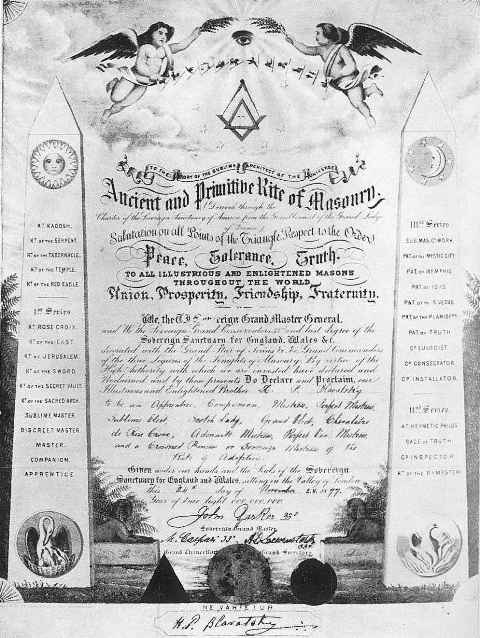 TO THE GLORY OF THE SUBLIME ARCHITECT OF THE UNIVERSE
Ancient and Primitive Rite of Masonry.
Derived through the
Charter of the Sovereign Sanctuary of America from the Grand Council of the Grand Lodge
of France
Salutation on all Points of the Triangle Respect to the Order
Peace, Tolerance, Truth.
TO ALL ILLUSTRIOUS AND ENLIGHTENED MASONS
THROUGHOUT THE WORLD
Union, Prosperity, Friendship, Fraternity.
We, the Sovereign Grand Master General,
and We the Sovereign Grand Conservators and last degree of the
Sovereign Sanctuary for England, Wales &c.
decorated with the Grand Star of Sirius &c Grand Commanders
of the three Legions of the Knights of Masonry, By virtue of the
High Authority with which we are invested have declared and
Proclaimed and by these presents Do Declare and Proclaim our
Illustrious and Enlightened Brother H. P. Blavatsky
to be an Apprentice, Companion, Mistress, Perfect Mistress,
Sublime Elect Scotch Lady, Grand Elect, Chevalière
de Rose Croix, Adonaite Mistress, Perfect Mistress,
and a Crowned Princess of
Rite of Adoption.
Given under our hands and the Seals of the Sovereign
Sanctuary for England and Wales, sitting in the Valley of London
this 24th day of November 1877,
Year of true light 000,000,000.
John Yarker 33°
Sovereign Grand Master
M. Caspari 33°
Grand Chancellor
Grand Secretary
NE VARIETUR
H.P. Blavatsky
KT KADOSH.
KT OF THE SERPENT.
KT OF THE TABERNACLE.
KT OF THE TEMPLE.
KT OF THE RED EAGLE.
1st Series
KT ROSE CROIX.
KT OF THE EAST.
KT OF JERUSALEM.
KT OF THE SWORD.
KT OF THE SECRET VAULT.
KT OF THE SACRED ARCH.
SUBLIME MASTER.
DISCREET MASTER.
MASTER.
COMPANION.
APPRENTICE.
IIIrd Series
PAT OF THE MYSTIC CITY
PAT OF MEMPHIS
PAT OF ISIS
PAT OF TRUTH
GD CONSECRATOR
GD INSTALLATOR
IInd Series
KT HERMETIC PHILOS
SAGE OF TRUTH
GD INSPECTOR